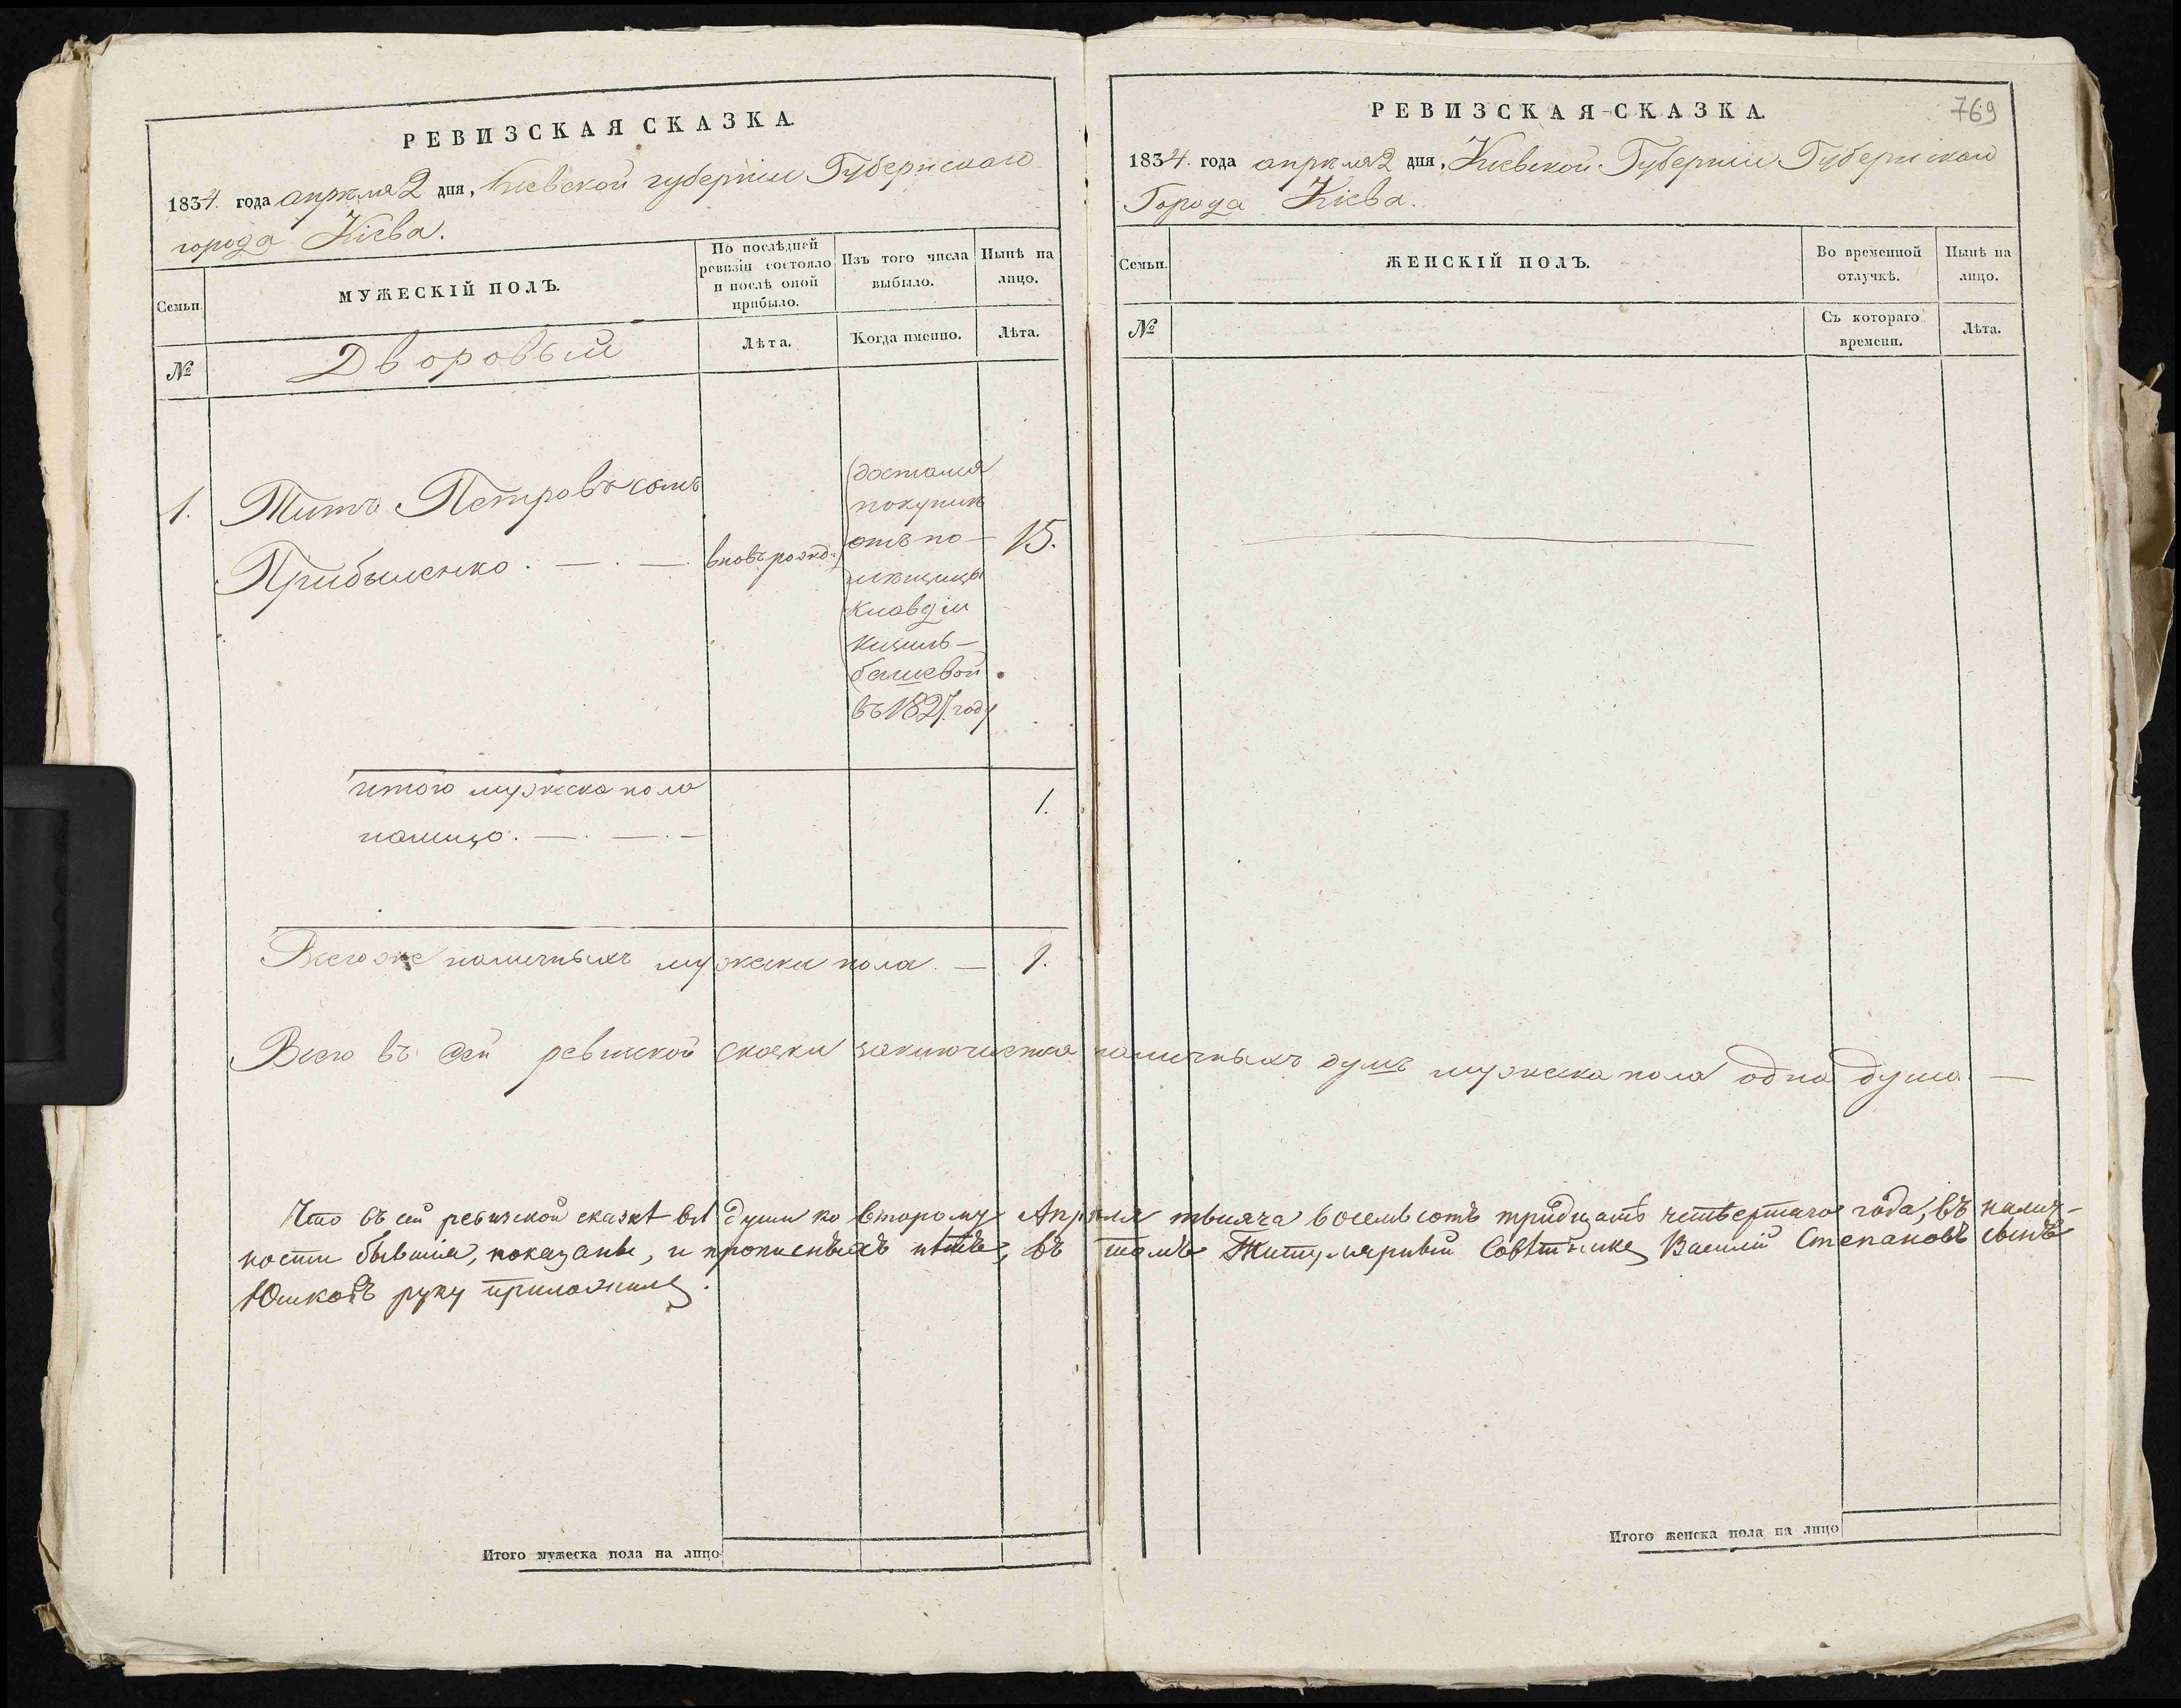 РЕВИЗСКАЯ СКАЗКА.
1834. года апрѣля 2 дня, Кіевской губерніи Губернскаго
города Кіева.
Семьи.
МУЖЕСКІЙ ПОЛЪ.
По послѣдней
ревизіи состояло
и послѣ оной
прибыло.
Изъ того числа
выбыло.
Нынѣ на
лицо.
№
Дворовый
Лѣта.
Когда именно.
Лѣта.
1.
Титъ Петровъ сынъ
Прибыленко. — . — .
вновь рожд:
достался
покупкѣ
отъ по-
мѣщицы
Клавдіи
Кизиль-
башевой
въ 1827. году
15.
итого мужеска пола
налицо. — . — . —
1.
Всего же наличныхъ мужеска пола. — 1.
Всего въ сей ревизкой сказки заключается наличныхъ душъ мужеска пола одна душа —
Что въ сей ревизской сказкѣ всѣ души ко второму Апрѣля тысяча восемьсотъ тридцать четвертаго года, въ налич-
ности бывшія, показаны, и прописныхъ нѣтъ, въ томъ Титулярный Совѣтникъ Василій Степановъ сынъ
Юшковъ руку приложилъ.
Итого мужеска пола на лицо
769
РЕВИЗСКАЯ СКАЗКА.
1834. года апрѣля 2 дня, Кіевской Губерніи Губернскаго
Города Кіева.
Семьи.
ЖЕНСКІЙ ПОЛЪ.
Во временной
отлучкѣ.
Нынѣ на
лицо.
№
Съ котораго
времени.
Лѣта.
Итого женска пола на лицо